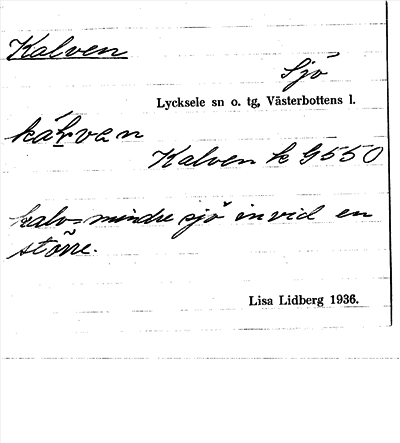 Kalven
Sjö
Lycksele sn o. tg, Västerbottens l.
kál̠van
Kalven k G550
kalv = mindre sjö invid en
större.
Lisa Lidberg 1936.